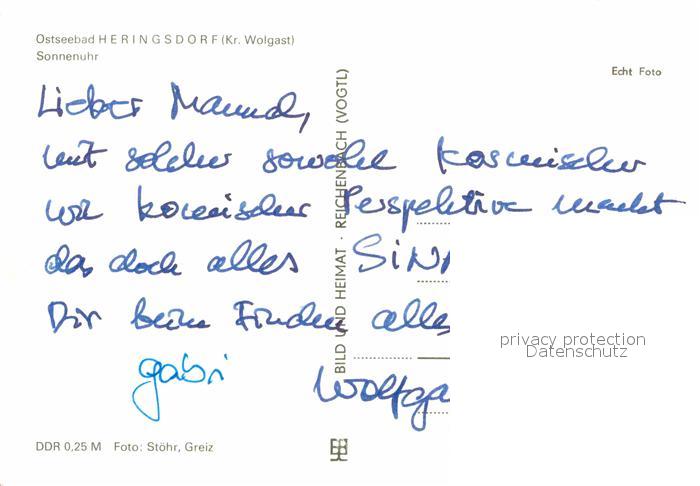 Ostseebad HERINGSDORF (Kr. Wolgast)
Sonnenuhr
Echt Foto
Lieber Manned,
mit solcher sowohl kosmischer
wie komischer Perspektive macht
das doch alles SiN
Dir beim Finden alle
gabi Wolfga
BILD UND HEIMAT · REICHENBACH (VOGTL)
privacy protection
Datenschutz
DDR 0,25 M Foto: Stöhr, Greiz